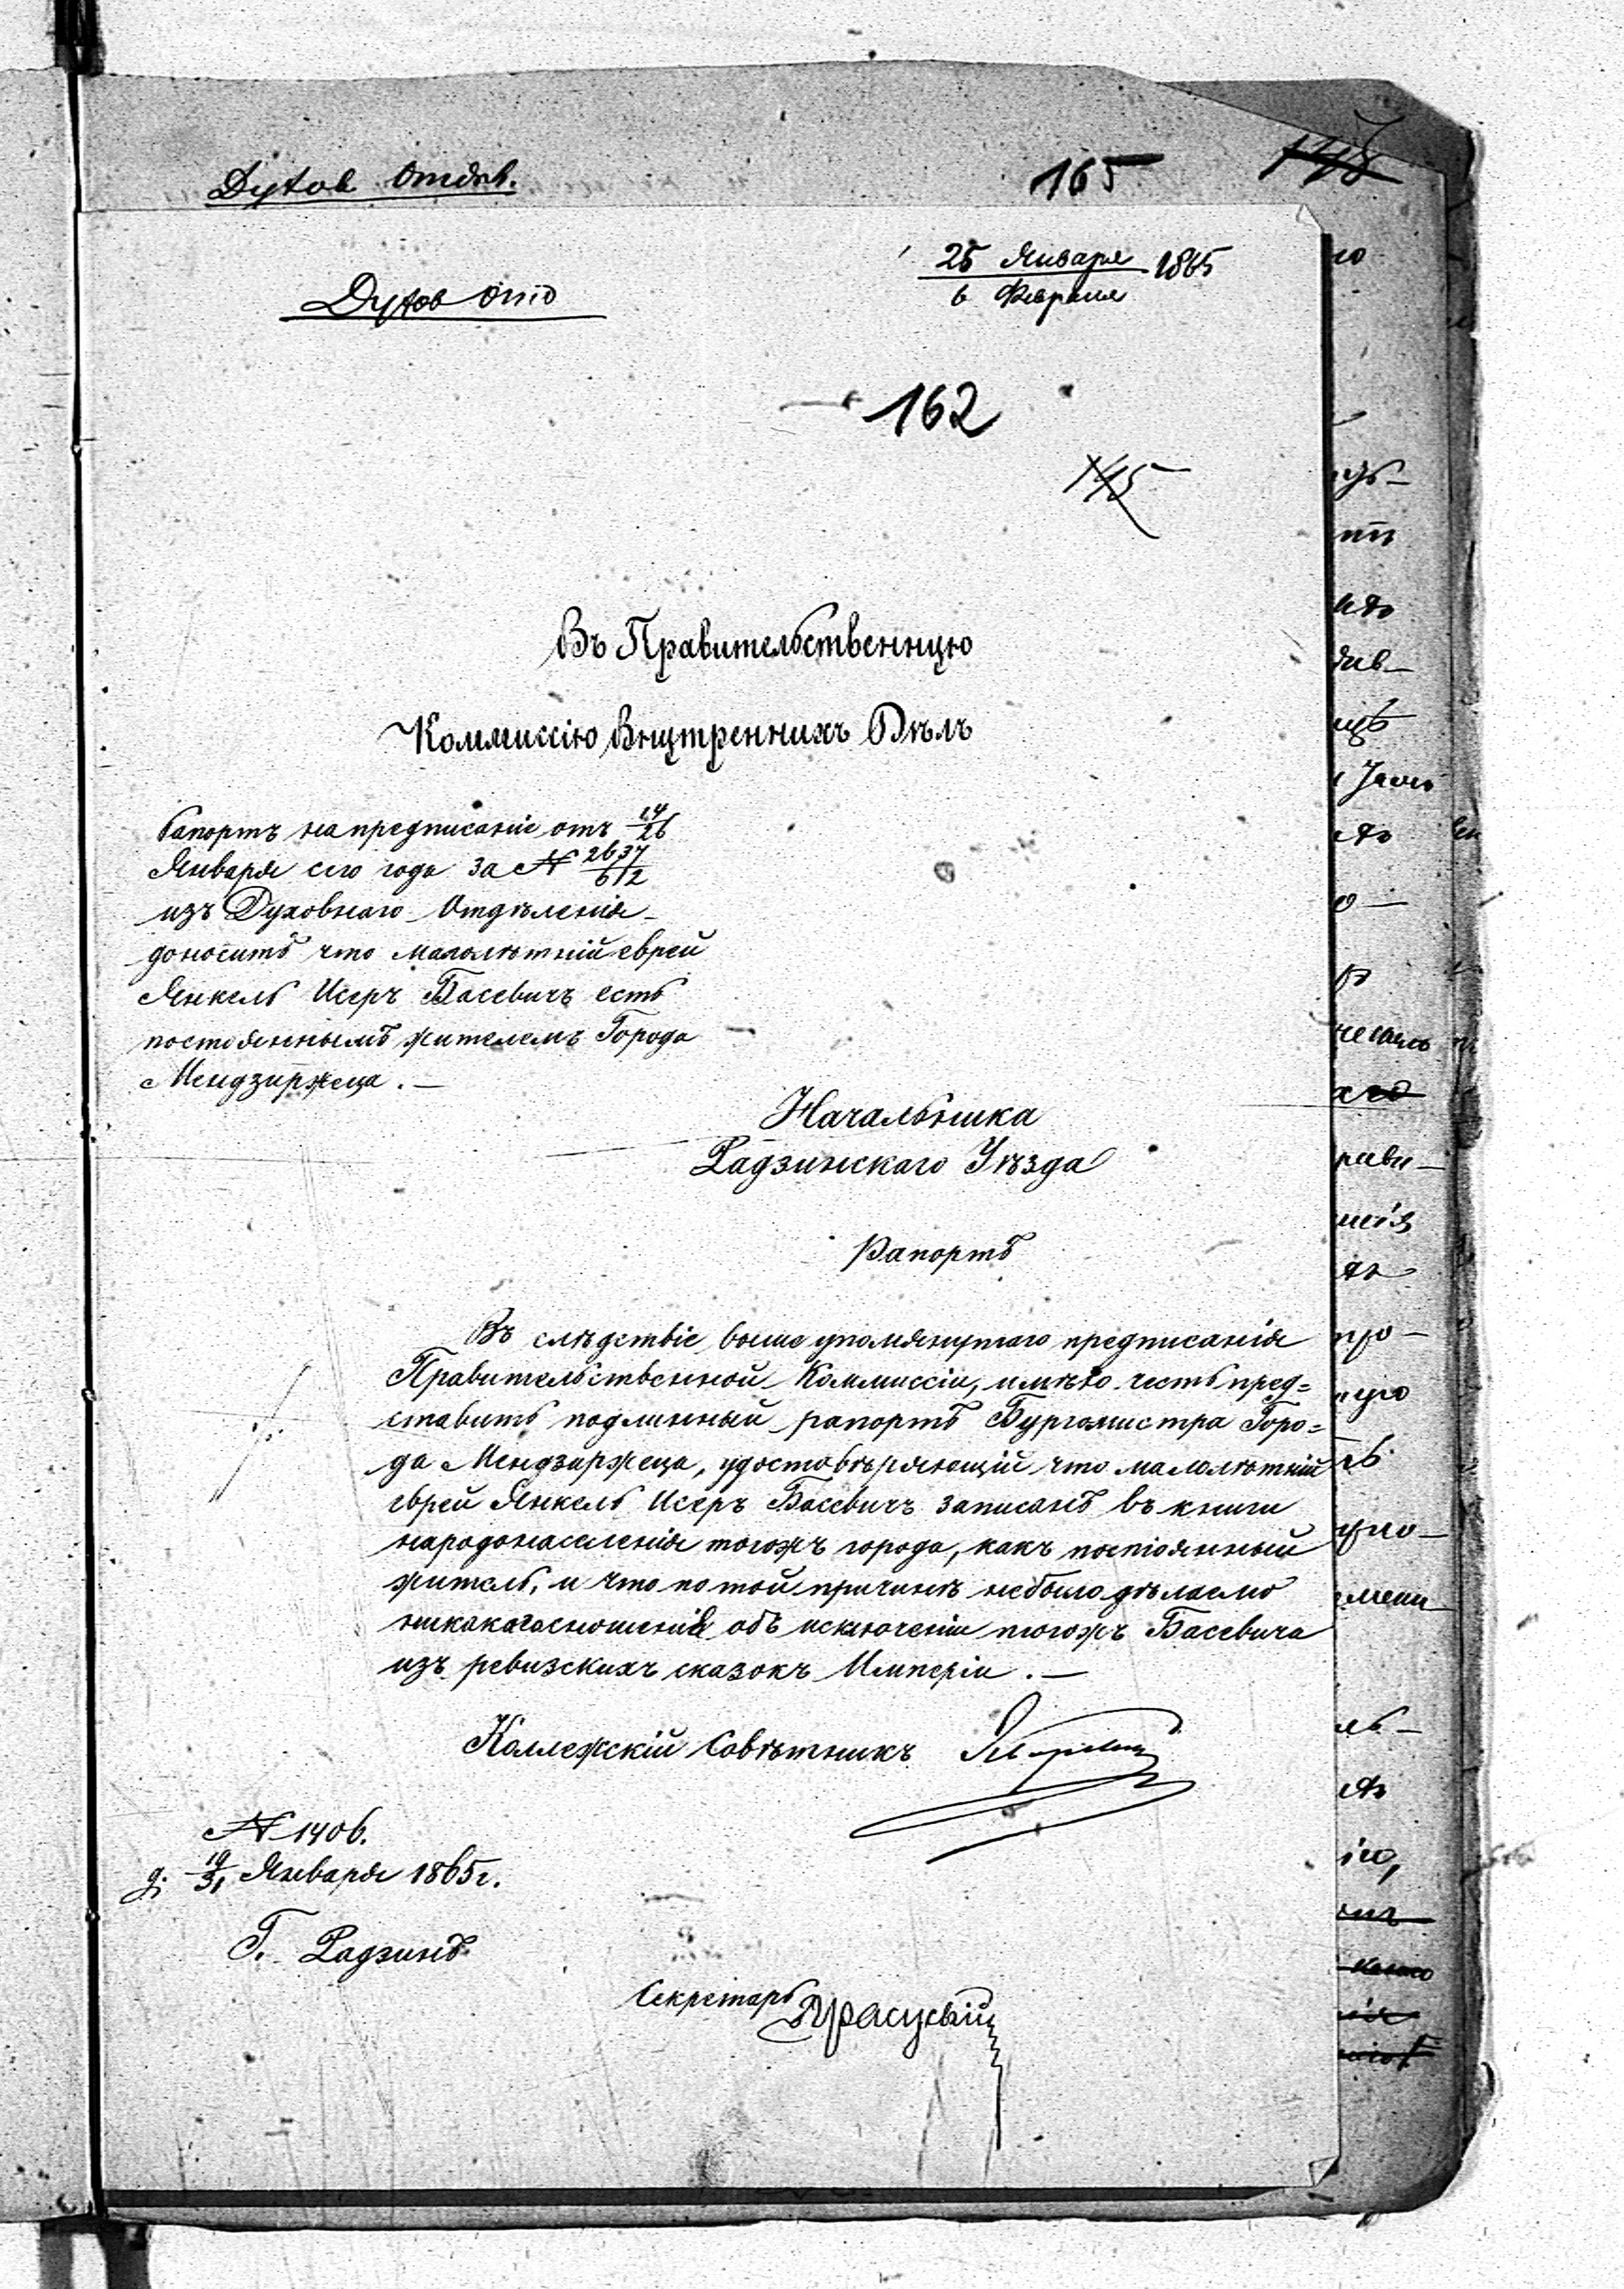 Духов Отдѣл.
165
Духов Отд
25 Января 1865
6 Февраля
162
145
Въ Правительственную
Коммиссію Внутреннихъ Дѣлъ
Рапортъ на предписаніе отъ 14/26
Января сего года за № 2637/612
изъ Духовнаго Отдѣленія
доноситъ что малолѣтній еврей
Янкель Исеръ Басевичъ есть
постояннымъ жителемъ Города
Мендзиржеца. —
Начальника
Радзинскаго Уѣзда
Рапортъ
Въ слѣдствіе выше упомянутаго предписанія
Правительственной Коммиссіи, имѣю честь пред=
ставить подлинный рапортъ Бургомистра Горо=
да Мендзаржеца, удостовѣряющій что малолѣтній
еврей Янкель Исеръ Басевичъ записанъ въ книги
народонаселенія тогожъ города, какъ постоянный
житель, и что по той причинѣ небыло дѣлаемо
никакагосношенія объ исключеніи тогожъ Басевича
изъ ревизскихъ сказокъ Имперіи. —
Коллежскій Совѣтникъ
№ 1406.
д. 19/31 Января 1865 г.
Г. Радзинъ
Секретарь